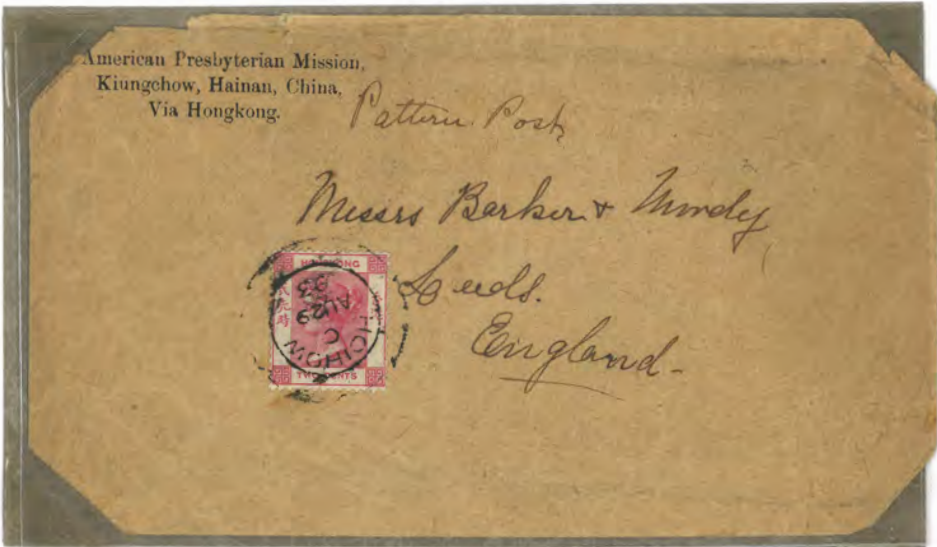 American Presbyterian Mission,
Kiungchow, Hainan, China,
Via Hongkong.
Pattern Post
Messrs Barker &
Leeds.
England.
HONG KONG
TWO CENTS
HOIHOW
C
AU 29
93